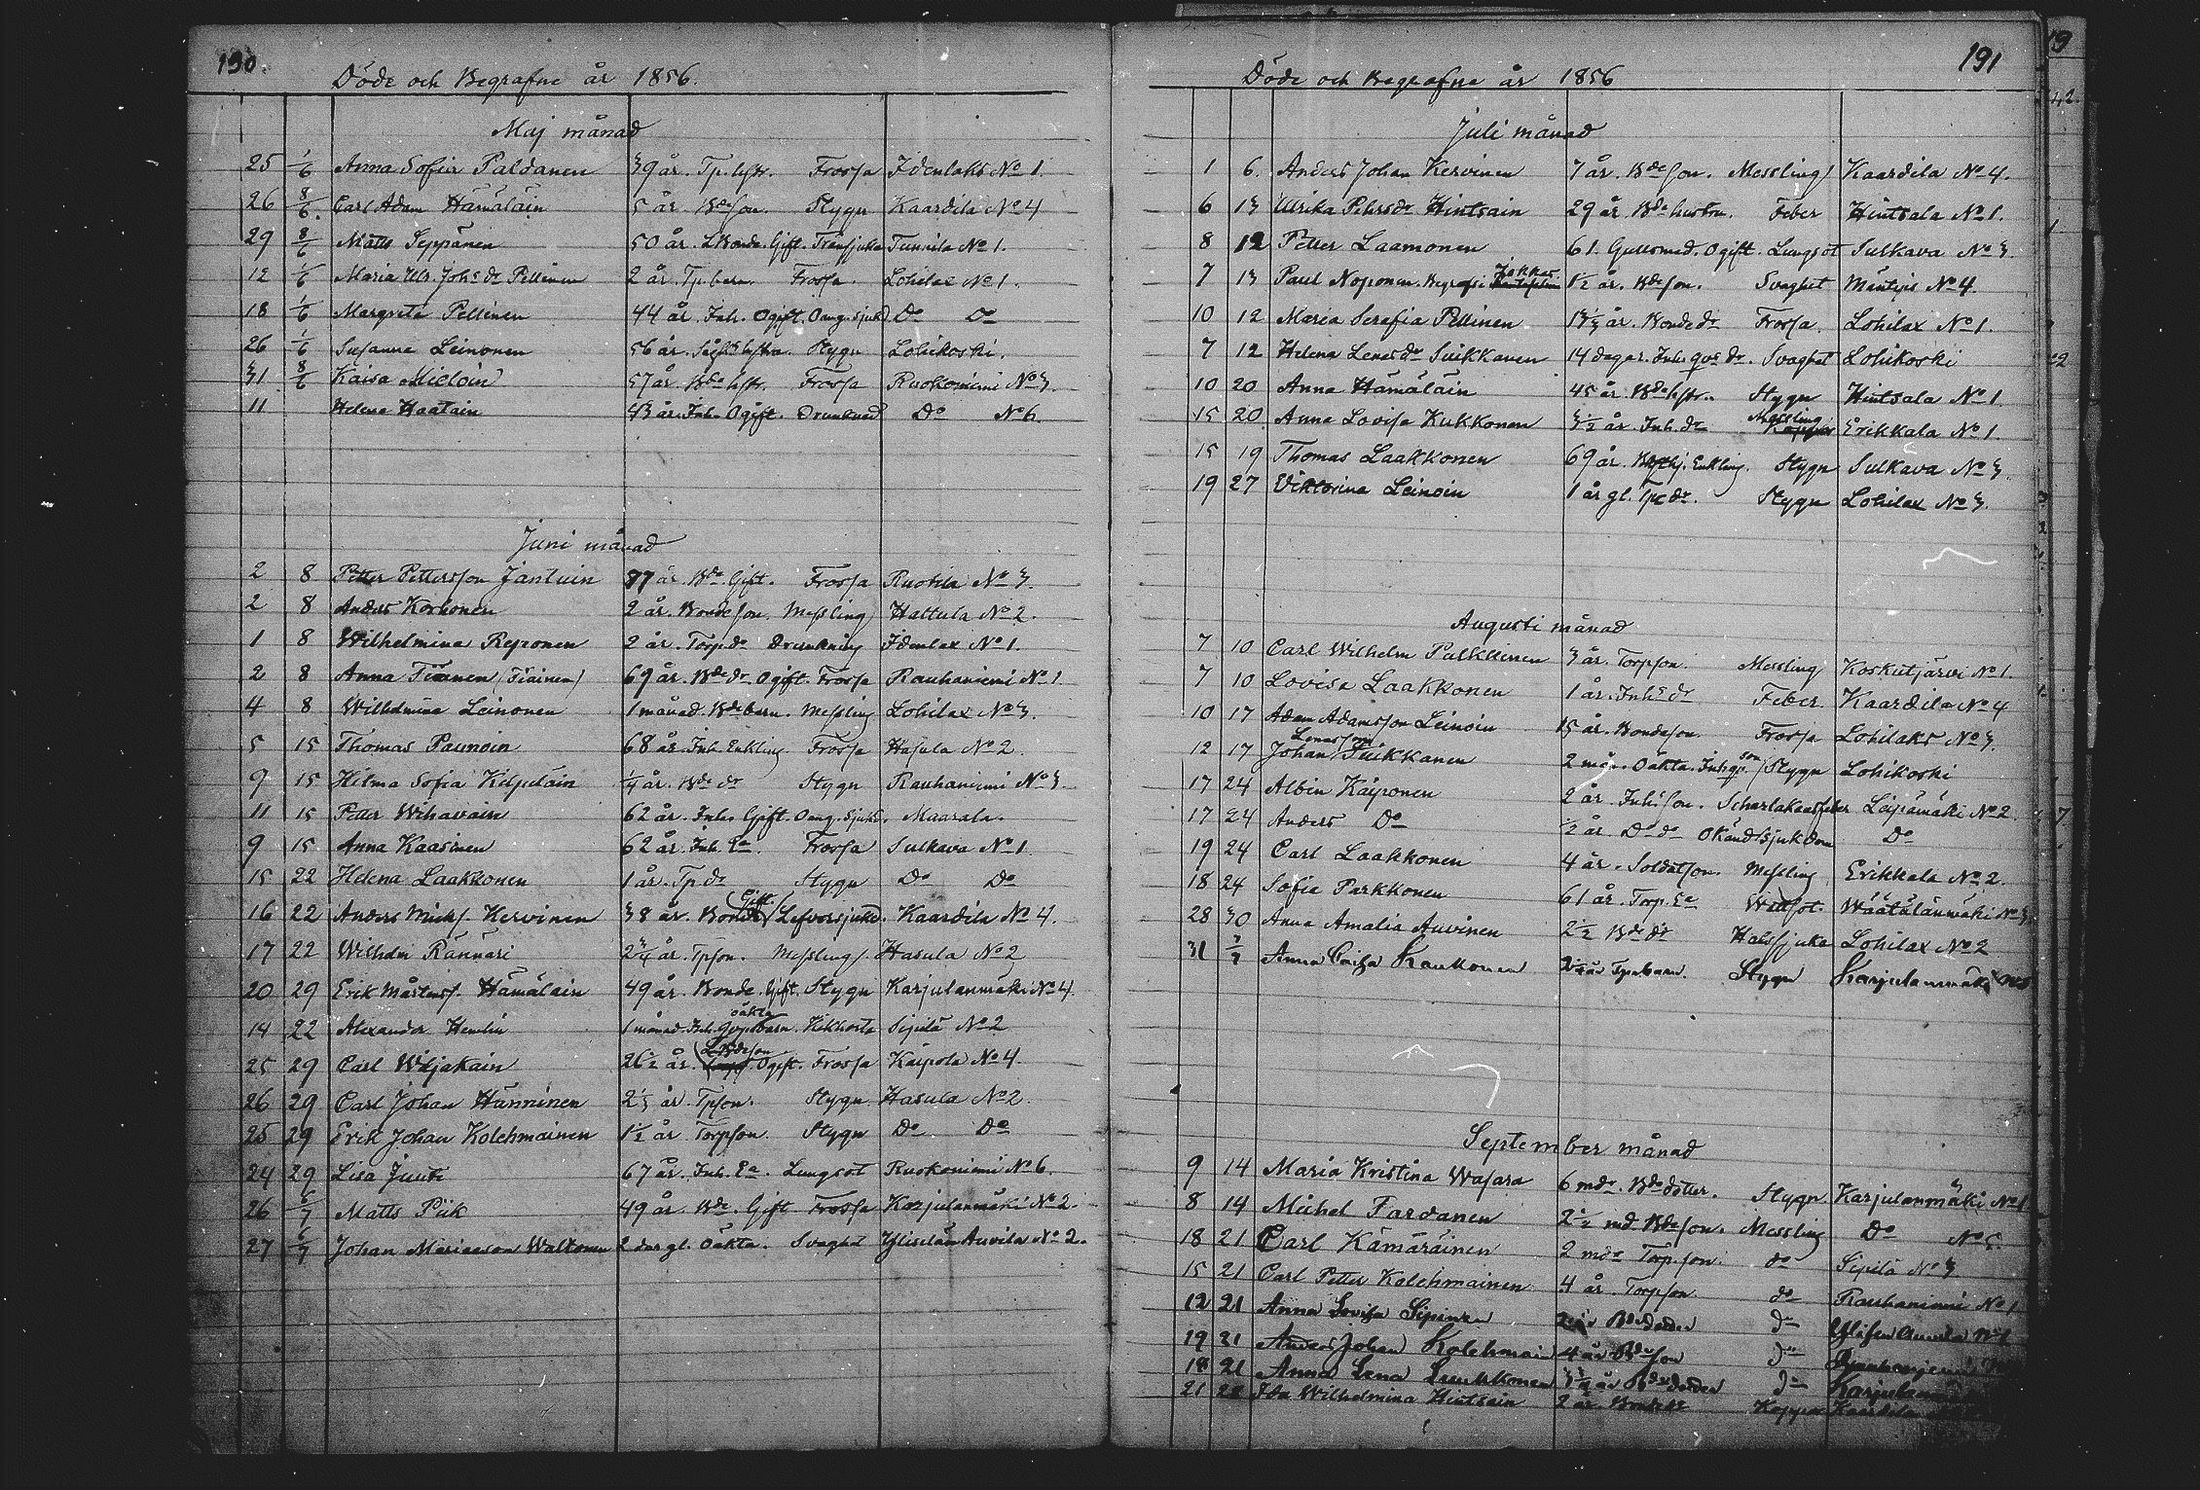 190.
Döde och Begrafne år 1856.
Maj månad
25 1/6 Anna Sofia Paldanen 39 år. Tp. hstr. Frossa Idenlaks No 1.
26 8/6. Carl Adam Hämäläin 5 år. Bdeson. Stygn Kaardila No 4
29 8/6 Matts Seppänen 50 år. LBonde. Gift. Tunnila No 1.
12 1/6 Maria Ulr. Johsdr Pellinen 2 år. Tp.barn. Frossa. Lohilax No 1.
18 1/6 Margreta Pellinen 44 år. Inh. Ogift. Oang. sjukd. Do Do
26 1/6 Susanna Leinonen 56 år. hstru. Stygn Lohikoski.
31 8/6 Kaisa Mieloin 57 år. Bde hstr. Frossa Ruokoniemi No 3.
11 Helena Haatain 43 år. Inh. Ogift. Drunknad Do No 6.
Juni månad
2 8 Petter Pettersson Jantuin 87 år. Bde. Gift. Frossa Ruokila No 3.
2 8 Anders Korhonen 2 år. Bondeson. Messling Hattula No 2.
1 8 Wilhelmina Reponen 2 år. Torp.dr Drunkning Idenlax No 1.
2 8 Anna Tianen (Tiainen) 69 år. Bdedr Ogift. Frossa Rauhaniemi No 1
4 8 Wilhelmina Leinonen 1 månad. Bdebarn. Messling Lohilax No 3.
5 15 Thomas Paunoin 68 år. Inh. Enkling Frossa Hasula No 2.
9 15 Hilma Sofia Kilpeläin 1/4 år. Bde dr Stygn Rauhaniemi No 3
11 15 Petter Wihavain 62 år. Inhs Gift. Oang. sjukd. Maarala.
9 15 Anna Kaasinen 62 år. Inh. Ea. Frossa Sulkava No 1.
15 22 Helena Laakkonen 1 år. Tp. dr Stygn Do Do
16 22 Anders Michs. Kervinen 38 år. Bonde Gift. Lefversjukd. Kaardila No 4.
17 22 Wilhelm Rännäri 2 3/4 år. Tpson. Messling. Hasula No 2
20 29 Erik Mårtenss. Hämäläin 49 år. Bonde. Gift. Stygn Karjulanmäki No 4.
14 22 Alexander Hemlin 1 månad. Inh. oäkta barn. Kikhosta Sipilä No 2
25 29 Carl Wiljakain 26 1/2 år. LBdeson Ogift. Frossa Kaipola No 4.
26 29 Carl Johan Hänninen 2 1/3 år. Tpson. Stygn Hasula No 2.
25 29 Erik Johan Kolehmainen 1 1/2 år Torpson. Stygn Do Do
24 29 Lisa Juuti 67 år. Inh. Ea. Lungsot Ruokoniemi No 6.
26 6/7 Matts Piik 49 år. Bde. Gift Frossa Karjulanmäki No 2.
27 6/7 Johan Mariasson Waltonen 2 dar gl. Oäkta. Svaghet Ylisilän Auvila No 2.
191
Döde och Begrafne år 1856
Juli månad
1 6. Anders Johan Kervinen 7 år. Bdeson. Messling Kaardila No 4.
6 13 Ulrika Pehrsdr Hintsain 29 år. Bde hustru. Feber Hintsala No 1.
8 12 Petter Laamonen 61. Ogift. Lungsot Sulkava No 3.
7 13 Paul Noponen. Begrafs i Jokkas 1 1/2 år. Bdeson. Svaghet Mäntys No 4
10 12 Maria Serafia Pellinen 1 1/3 år. Bondedr Frossa. Lohilax No 1.
7 12 Helena Lenasdr Suikkanen 14 dagar. Inh. qvs dr. Svaghet Lohikoski
10 20 Anna Hämäläin 45 år. Bdehstr. Stygn Hintsala No 1
15 20. Anna Lovisa Kukkonen 3 1/2 år. Inh. dr Messling Erikkala No 1.
15 19 Thomas Laakkonen 69 år. Enkling. Stygn Sulkava No 3.
19 27 Viktorina Leinoin 1 år gl. Tpdr. Stygn Lohilax No 3.
Augusti månad
7 10 Carl Wilhelm Pulkkinen 3 år. Torpson. Messling Koskutjärvi No 1.
7 10 Lovisa Laakkonen 1 år. Inhsdr Feber. Kaardila No 4
10 17 Adam Adamsson Leinoin 15 år. Bondeson. Frossa Lohilaks No 3.
12 17 Johan Lenasson Suikkanen 2 mån. Oäkta. Inh.qv.son Stygn Lohikoski
17 24 Albin Käiponen 2 år. Inhsson. Scharlakansfeber Leipämäki No 2.
17 24 Anders Do 1/2 år. Do do Okänd sjukdom Do
19 24 Carl Laakkonen 4 år. Soldatson. Messling Erikkala No 2.
18 24 Sofia Parkkonen 61 år. Torp. Ea Wattsot. Wäätälänmäki No 3.
28 30 Anna Amalia Auvinen 2 1/2 Bdedr Halssjuka Lohilax No 2
31 7/7 Anna Caisa Kaukonen 2 1/4 år Tpebarn. Stygn Karjulanmäki
September månad
9 14 Maria Kristina Wasara 6 mdr. Bdedotter. Stygn Karjulanmäki No 1
8 14 Michel Fardanen 2 1/2 md. Bdeson. Messling Do No 5.
18 21 Carl Kämäräinen 2 mdr Torp.son. do Sipilä No 3
15 21 Carl Petter Kolehmainen 4 år. Torpson do Rauhaniemi No 1
12 21 Anna Lovisa Sipinen Bdedotter do
19 21 Anders Johan Kolehmai 4 år Bdeson do
18 21 Anna Lena Luukkonen 3 1/4 år Bdedotter do Karjulan
21 28 Ida Wilhelmina Hintsain 2 år. Bondedr Koppor Kaardila